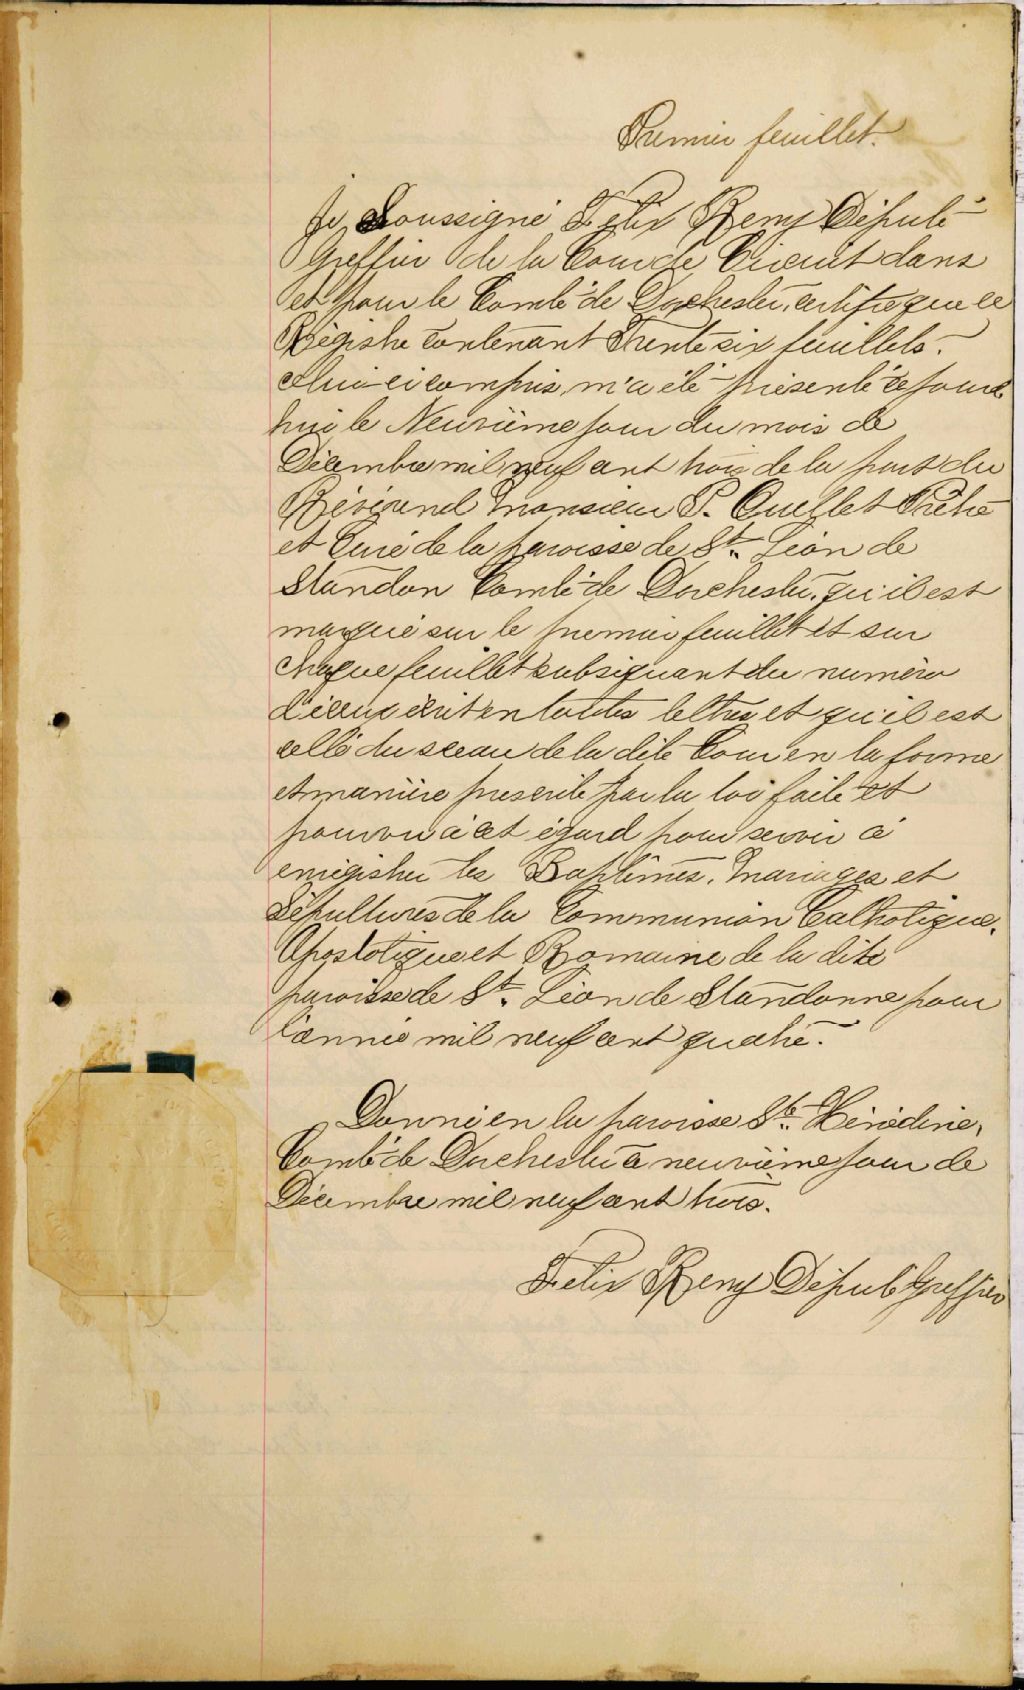 Premier feuillet.
Je Soussigné Félix Remy Député
Greffier de la Cour de Circuit dans
et pour le Comté de Dorchester, certifie que ce
Régistre contenant Trente six feuillets.
celui-ci compris, m'a été présenté ce jour
hui le Neuvième jour du mois de
Décembre mil neuf cent trois de la part du
Révérend Monsieur P. Ouellet Prêtre
et Curé de la paroisse de St. Léon de
Standon Comté de Dorchester, qu'il est
marqué sur le premier feuillet et sur
chaque feuillet subséquant du numéro
d'iceux écrit en toutes lettres et qu'il est
cellé du sceau de la dite Cour en la forme
et manière prescrite par la loi faite et
pourvu à cet égard pour servir à
enrégistrer les Baptêmes, Mariages et
Sépultures de la Communion Catholique,
Apostolique et Romaine de la dite
paroisse de St. Léon de Standonne pour
l'année mil neuf cent quatre.
Donné en la paroisse Ste. Hénédine,
Comté de Dorchester ce neuvième jour de
Décembre mil neuf cent trois.
Felix Remy Député Greffier